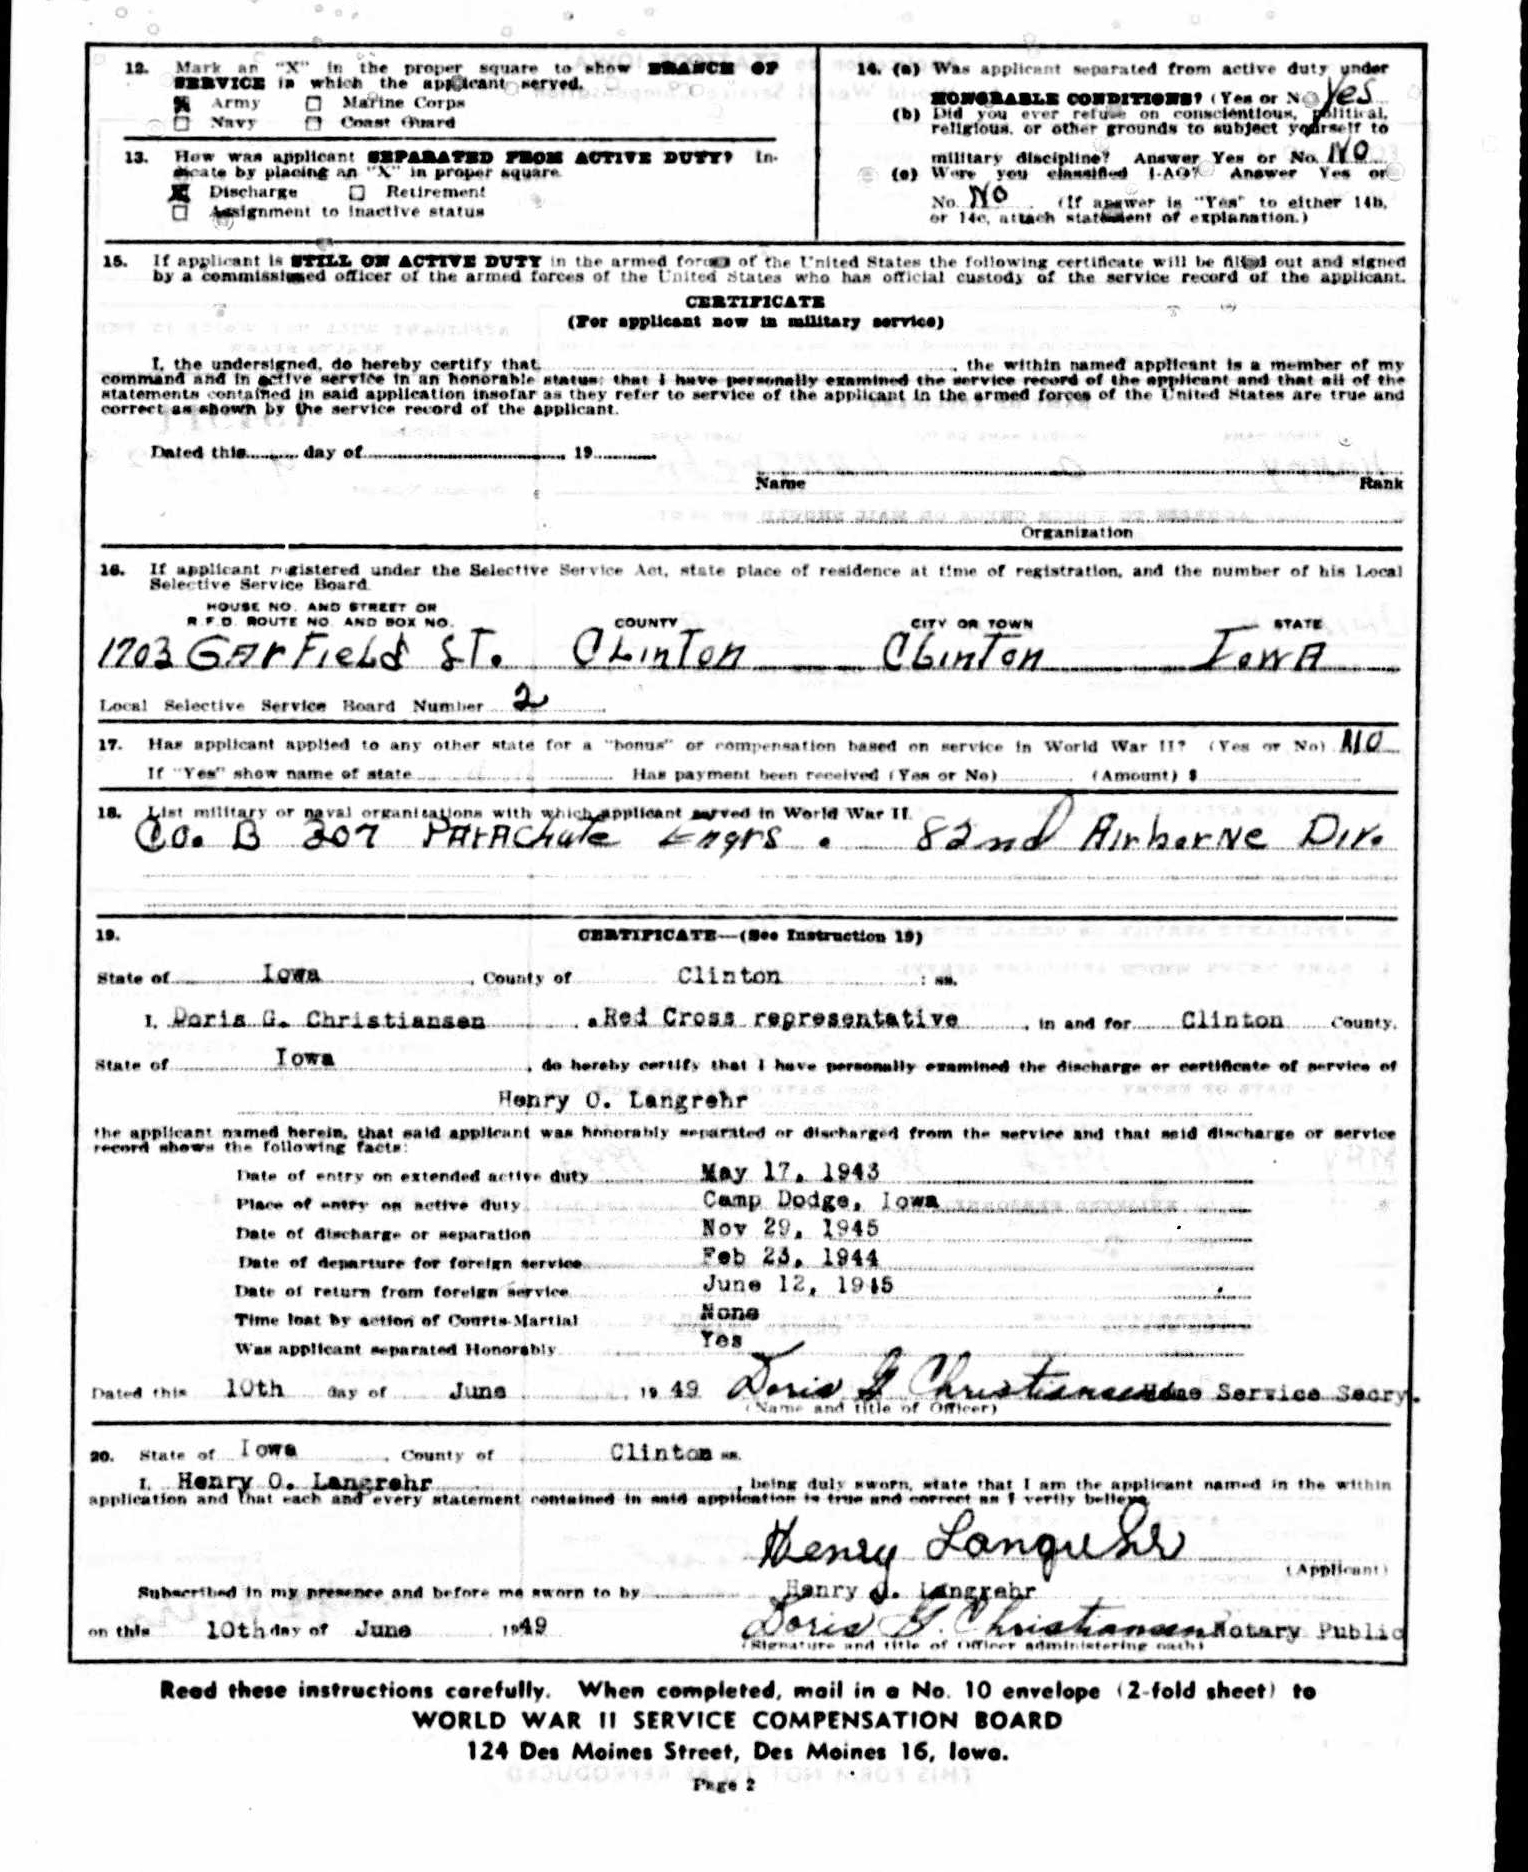 12. Mark an "X" in the proper square to show BRANCH OF
SERVICE in which the applicant served.
Army Marine Corps
Navy Coast Guard
13. How was applicant SEPARATED FROM ACTIVE DUTY? In-
dicate by placing an "X" in proper square
Discharge Retirement
Assignment to inactive status
14. (a) Was applicant separated from active duty under
HONORABLE CONDITIONS? (Yes or No) Yes
(b) Did you ever refuse on conscientious, political,
religious, or other grounds to subject yourself to
military discipline? Answer Yes or No. NO
(c) Were you classified 1-AO? Answer Yes or
No. NO (If answer is "Yes" to either 14b,
or 14c, attach statement of explanation.)
15. If applicant is STILL ON ACTIVE DUTY in the armed forces of the United States the following certificate will be filled out and signed
by a commissioned officer of the armed forces of the United States who has official custody of the service record of the applicant.
CERTIFICATE
(For applicant now in military service)
I, the undersigned, do hereby certify that, the within named applicant is a member of my
command and in active service in an honorable status; that I have personally examined the service record of the applicant and that all of the
statements contained in said application insofar as they refer to service of the applicant in the armed forces of the United States are true and
correct as shown by the service record of the applicant.
Dated this day of, 19
Name Rank
Organization
16. If applicant registered under the Selective Service Act, state place of residence at time of registration, and the number of his Local
Selective Service Board.
HOUSE NO. AND STREET OR
R.F.D. ROUTE NO. AND BOX NO. COUNTY CITY OR TOWN STATE
1703 GArFieLd ST. CLinTon CLinTon IowA
Local Selective Service Board Number 2
17. Has applicant applied to any other state for a "bonus" or compensation based on service in World War II? (Yes or No) NO
If "Yes" show name of state Has payment been received (Yes or No) (Amount) $
18. List military or naval organizations with which applicant served in World War II.
Co. B 307 PArAchute Engrs. 82nd Airborne Div.
19. CERTIFICATE—(See Instruction 19)
State of Iowa, County of Clinton : ss.
I, Doris G. Christiansen, Red Cross representative, in and for Clinton County,
State of Iowa, do hereby certify that I have personally examined the discharge or certificate of service of
Henry O. Langrehr
the applicant named herein, that said applicant was honorably separated or discharged from the service and that said discharge or service
record shows the following facts:
Date of entry on extended active duty May 17, 1943
Place of entry on active duty Camp Dodge, Iowa
Date of discharge or separation Nov 29, 1945
Date of departure for foreign service Feb 23, 1944
Date of return from foreign service June 12, 1945
Time lost by action of Courts-Martial None
Was applicant separated Honorably Yes
Dated this 10th day of June, 19 49 Doris G Christiansen Home Service Secry.
(Name and title of Officer)
20. State of Iowa, County of Clinton ss.
I, Henry O. Langrehr, being duly sworn, state that I am the applicant named in the within
application and that each and every statement contained in said application is true and correct as I verily believe.
Henry Langrehr
(Applicant)
Subscribed in my presence and before me sworn to by Henry O. Langrehr
on this 10th day of June 1949 Doris G. Christiansen Notary Public
(Signature and title of Officer administering oath)
Read these instructions carefully. When completed, mail in a No. 10 envelope (2-fold sheet) to
WORLD WAR II SERVICE COMPENSATION BOARD
124 Des Moines Street, Des Moines 16, Iowa.
Page 2